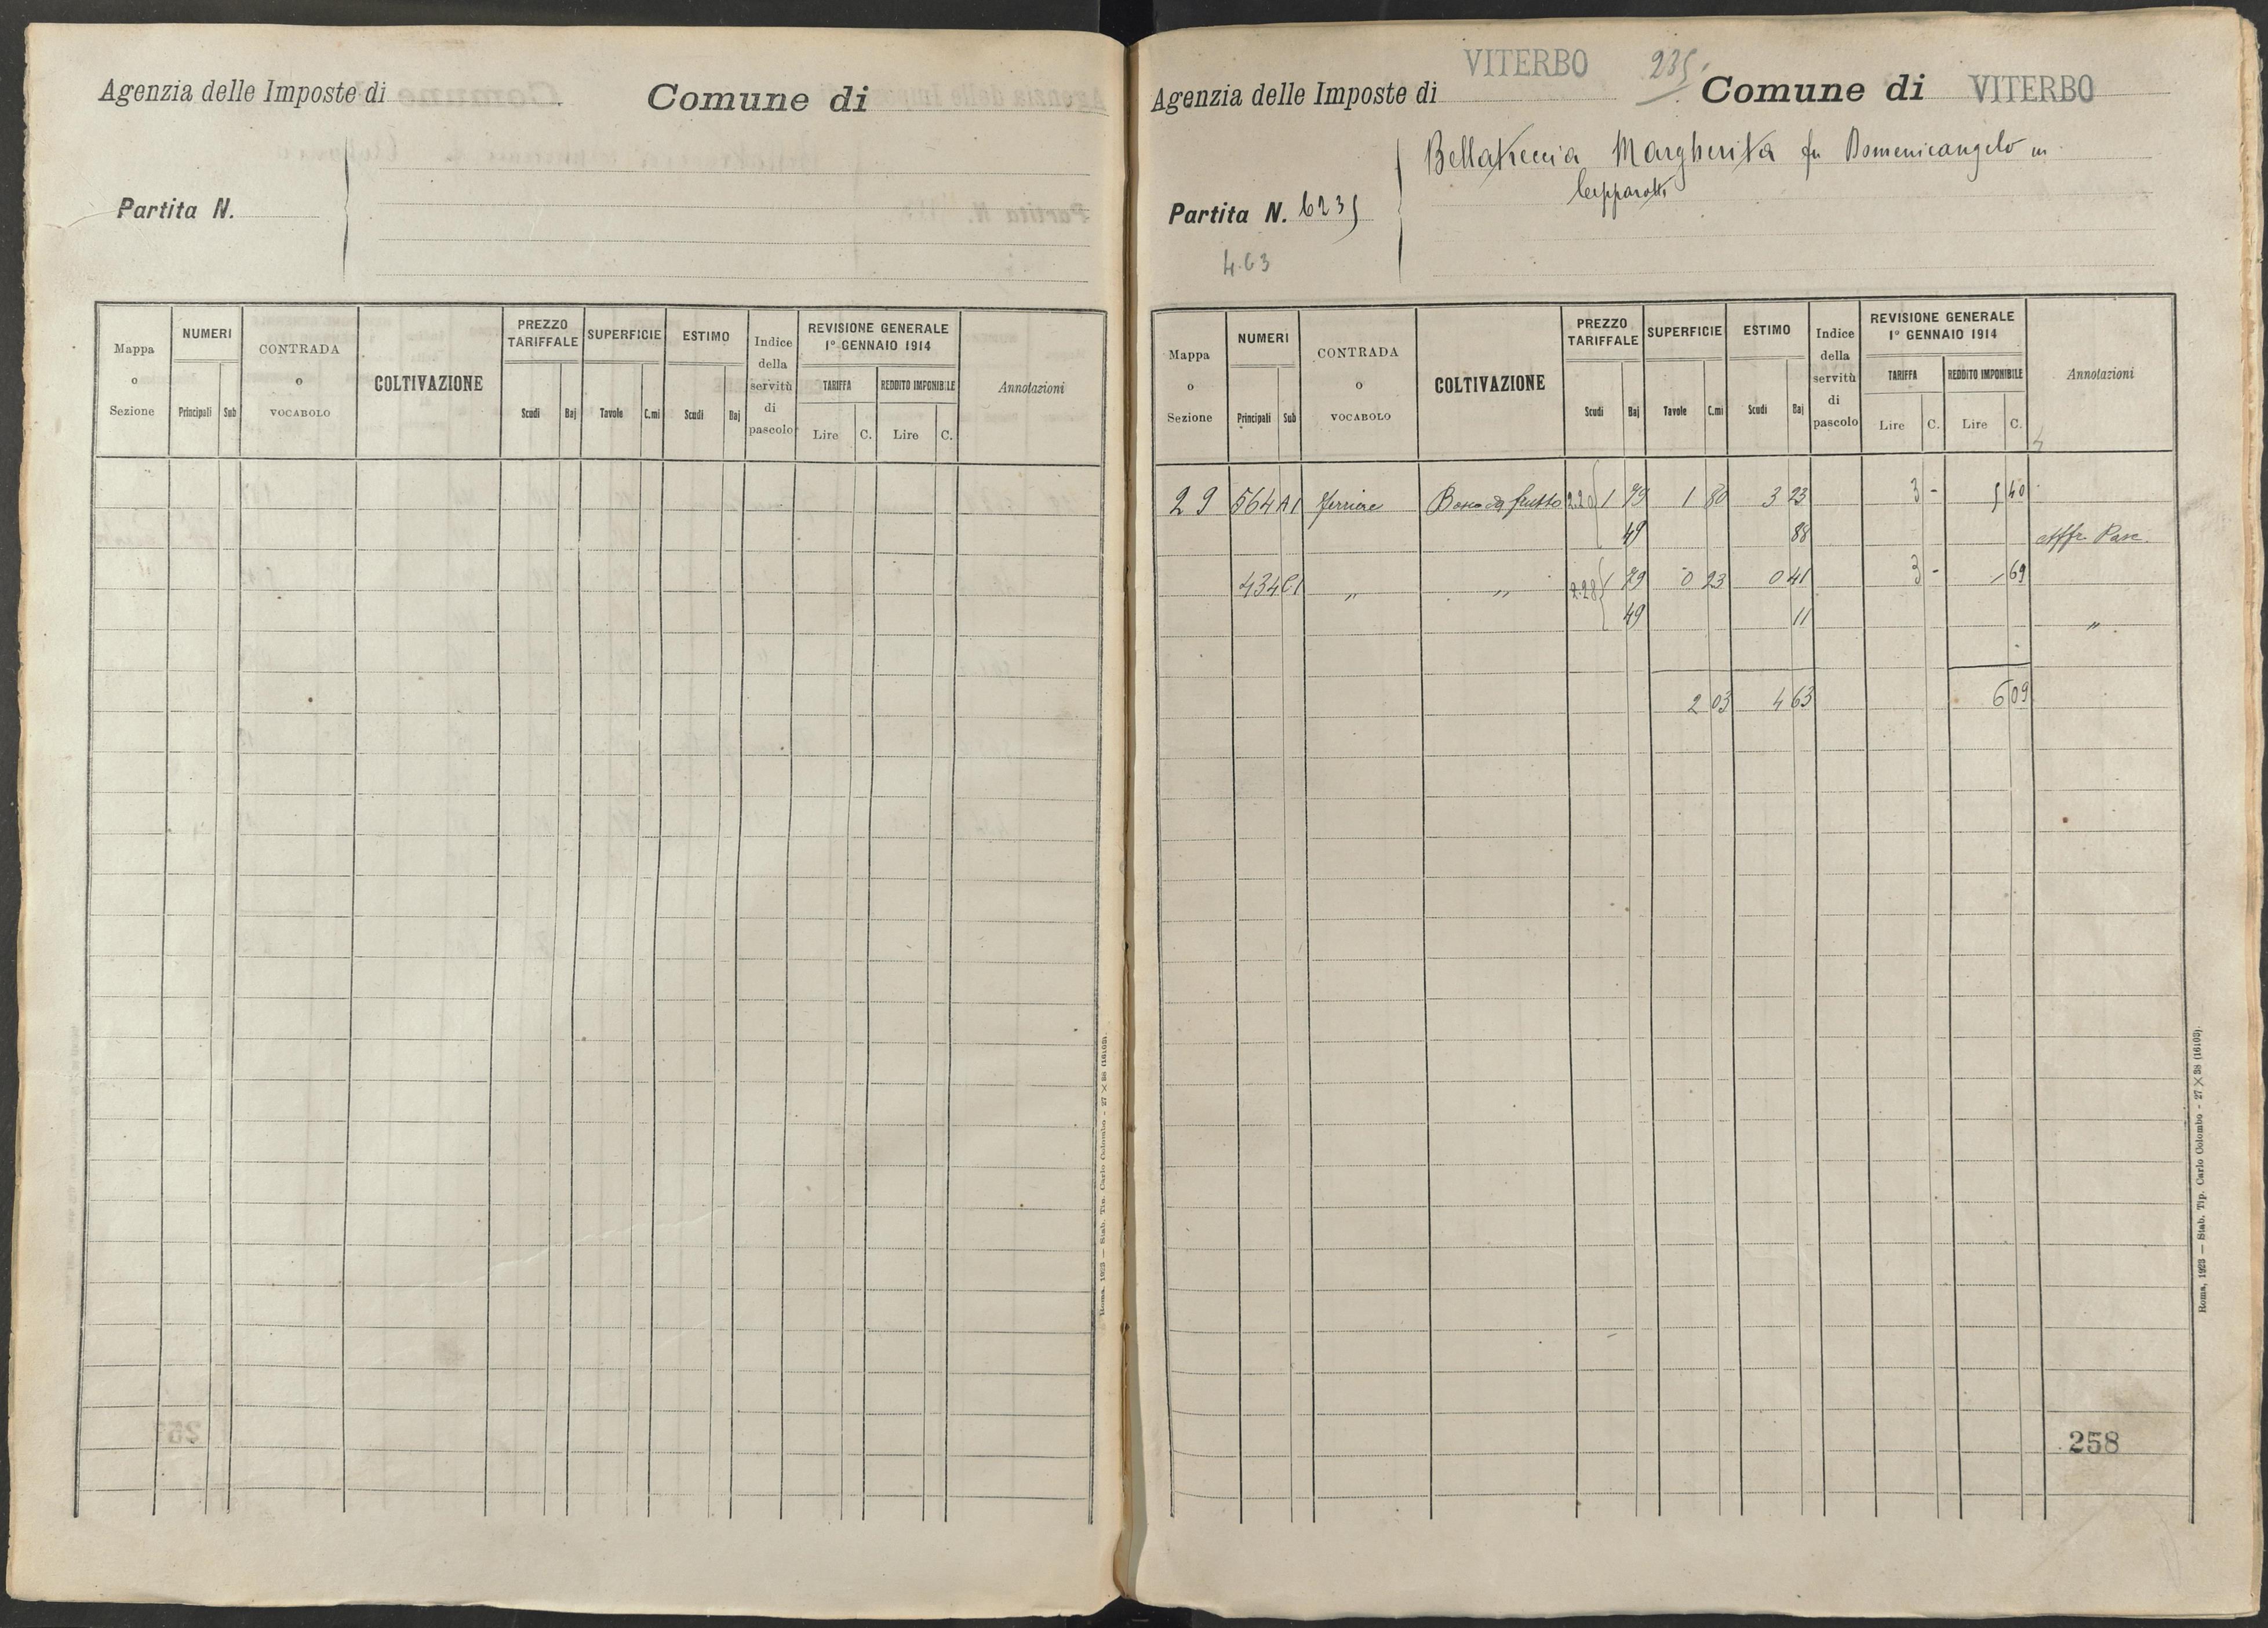 Agenzia delle Imposte di
Comune di
Partita N.
Mappa o Sezione
NUMERI
Principali
Sub
CONTRADA o VOCABOLO
COLTIVAZIONE
PREZZO TARIFFALE
Scudi
Baj
SUPERFICIE
Tavole
C.mi
ESTIMO
Scudi
Baj
Indice della servitù di pascolo
REVISIONE GENERALE 1° GENNAIO 1914
TARIFFA
Lire
C.
REDDITO IMPONIBILE
Lire
C.
Annotazioni
Roma, 1923 — Stab. Tip. Carlo Colombo - 27 X 38 (16103).
Agenzia delle Imposte di VITERBO
235
Comune di VITERBO
Bellatreccia Margherita fu Domenicangelo in
Partita N. 6235
4.63
Mappa o Sezione
NUMERI
Principali
Sub
CONTRADA o VOCABOLO
COLTIVAZIONE
PREZZO TARIFFALE
Scudi
Baj
SUPERFICIE
Tavole
C.mi
ESTIMO
Scudi
Baj
Indice della servitù di pascolo
REVISIONE GENERALE 1° GENNAIO 1914
TARIFFA
Lire
C.
REDDITO IMPONIBILE
Lire
C.
Annotazioni
29 564 A1 Ferriere Bosco da frutto 2.28 1 79 1 80 3 23 3 - 5 40
49 88 Affr. Pasc.
434 C1 " " 2.28 1 79 0 23 0 41 3 - - 69
49 11 "
2 03 4 63 6 09
258
Roma, 1923 — Stab. Tip. Carlo Colombo - 27 X 38 (16103).